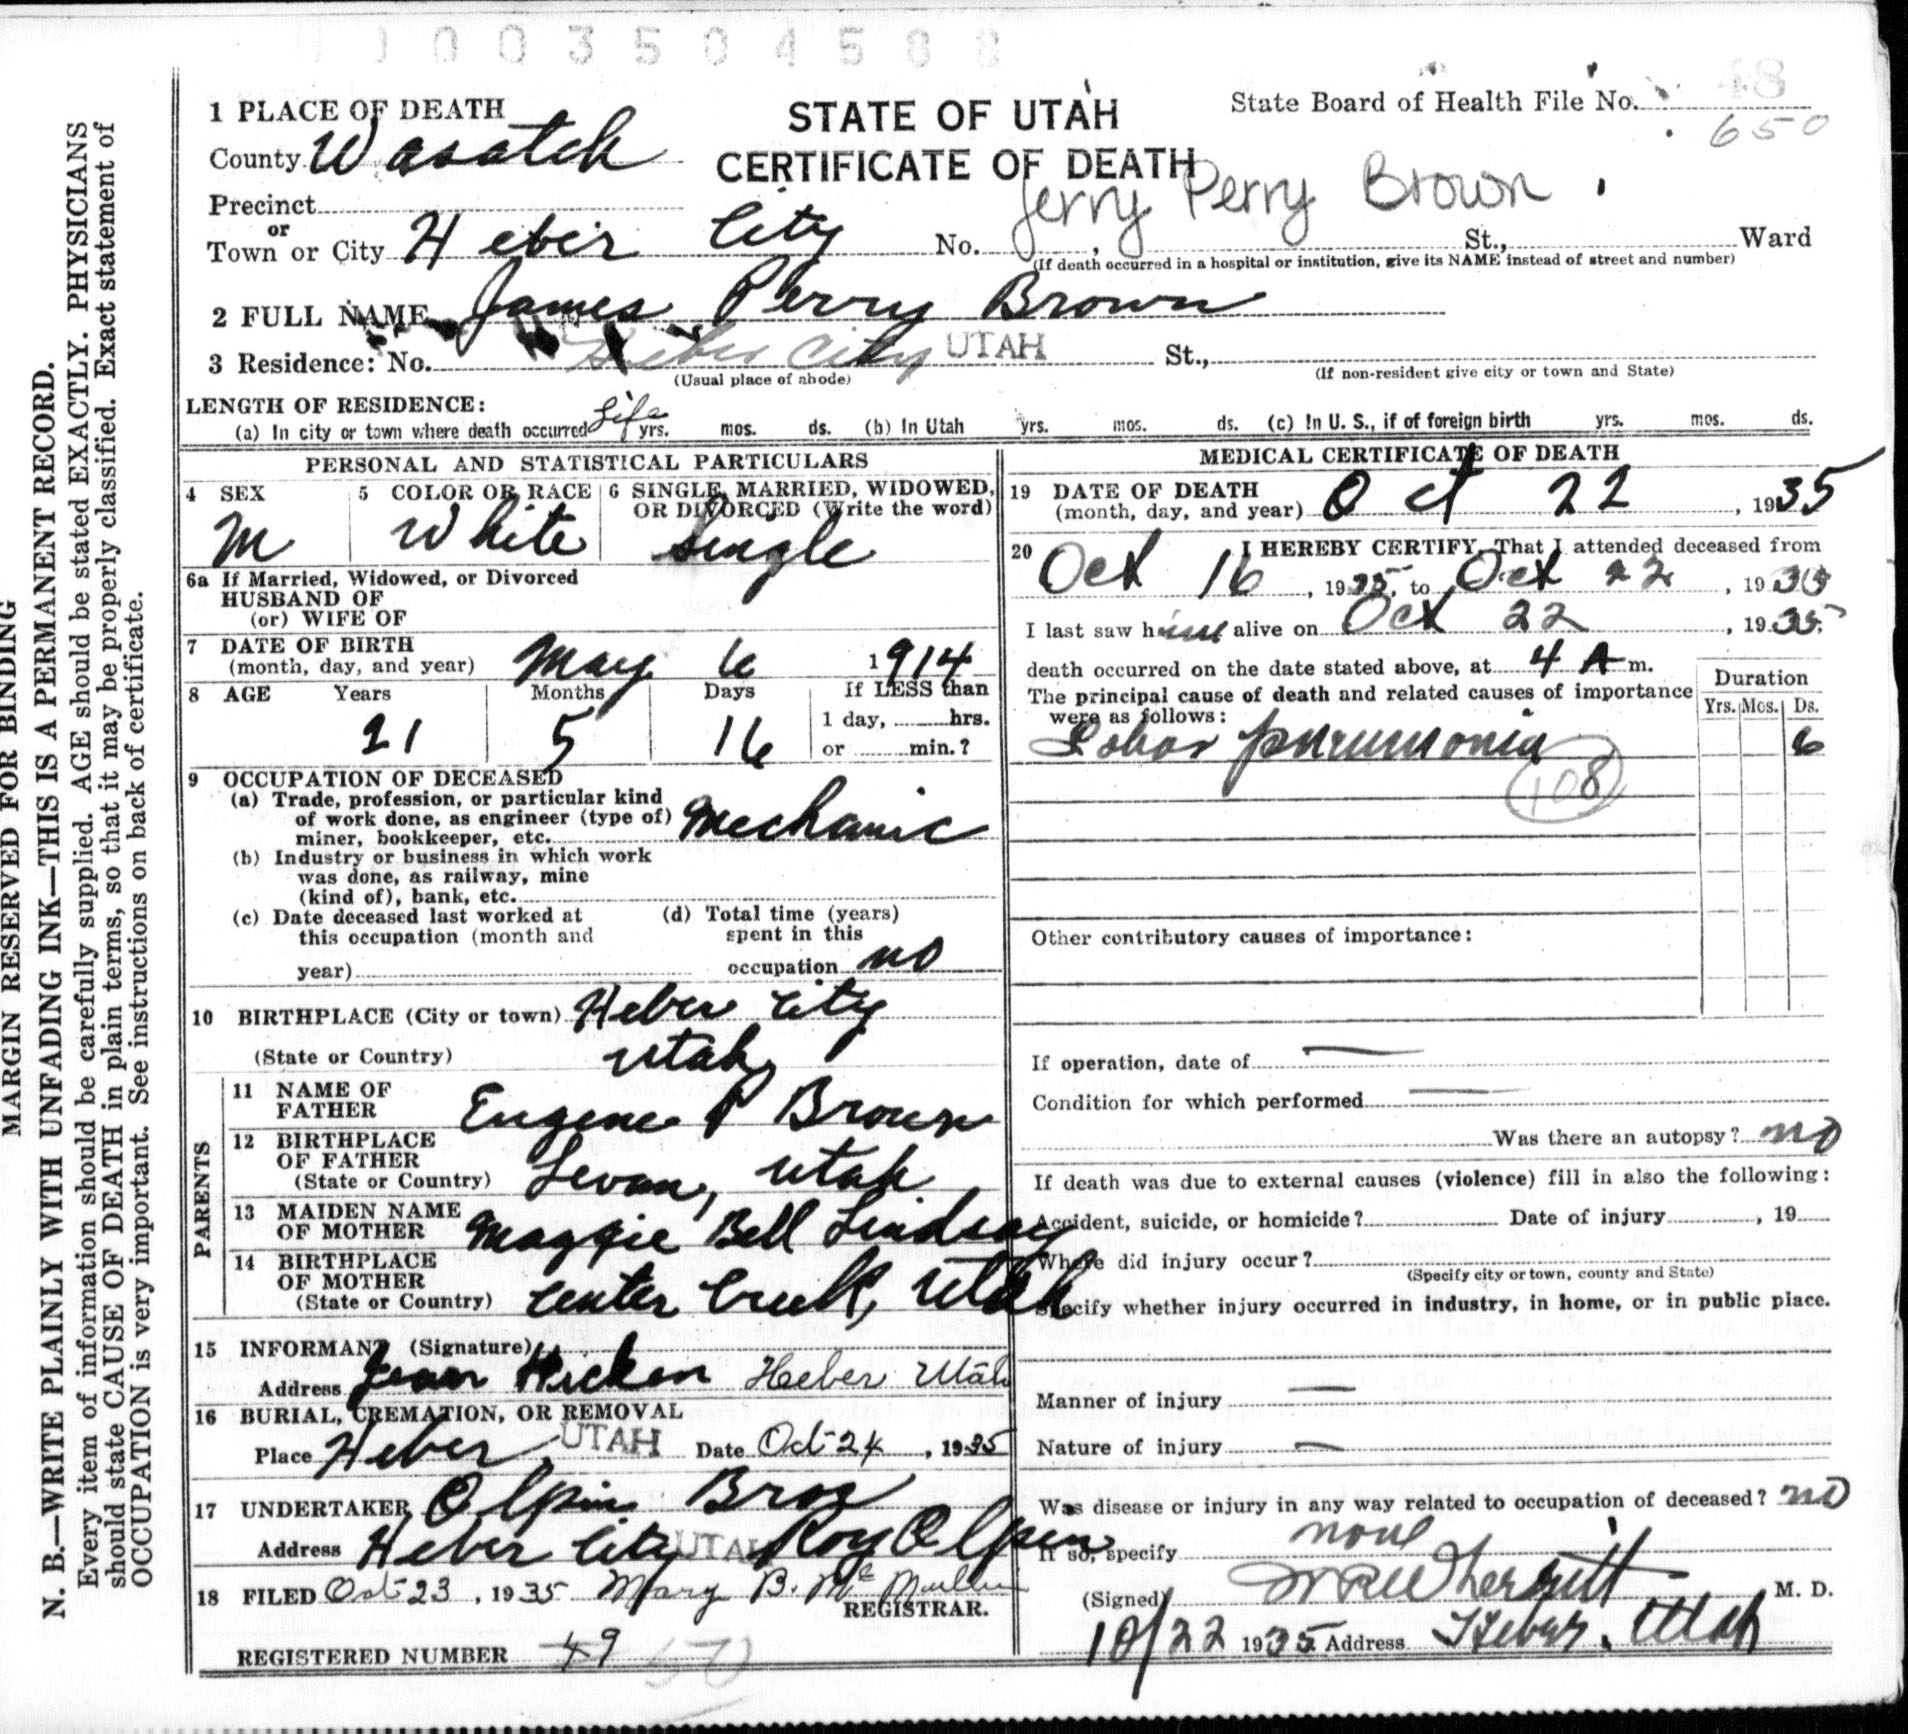 0003504588
1 PLACE OF DEATH
STATE OF UTAH
CERTIFICATE OF DEATH
State Board of Health File No. 48
650
County Wasatch
Jerry Perry Brown
Precinct
or
Town or City Heber City No. , St., Ward
(If death occurred in a hospital or institution, give its NAME instead of street and number)
2 FULL NAME James Perry Brown
3 Residence: No. Heber City UTAH St.,
(Usual place of abode) (If non-resident give city or town and State)
LENGTH OF RESIDENCE:
(a) In city or town where death occurred Life yrs. mos. ds. (b) In Utah yrs. mos. ds. (c) In U. S., if of foreign birth yrs. mos. ds.
PERSONAL AND STATISTICAL PARTICULARS
4 SEX
M
5 COLOR OR RACE
White
6 SINGLE, MARRIED, WIDOWED,
OR DIVORCED (Write the word)
Single
6a If Married, Widowed, or Divorced
HUSBAND OF
(or) WIFE OF
7 DATE OF BIRTH
(month, day, and year) May 6 1914
8 AGE Years Months Days If LESS than
21 5 16 1 day, hrs.
or min.?
9 OCCUPATION OF DECEASED
(a) Trade, profession, or particular kind
of work done, as engineer (type of)
miner, bookkeeper, etc. Mechanic
(b) Industry or business in which work
was done, as railway, mine
(kind of), bank, etc.
(c) Date deceased last worked at
this occupation (month and
year)
(d) Total time (years)
spent in this
occupation no
10 BIRTHPLACE (City or town) Heber City
(State or Country) Utah
PARENTS
11 NAME OF
FATHER Eugene P Brown
12 BIRTHPLACE
OF FATHER
(State or Country) Levan, Utah
13 MAIDEN NAME
OF MOTHER Maggie Bell Lindsay
14 BIRTHPLACE
OF MOTHER
(State or Country) Center Creek, Utah
15 INFORMANT (Signature)
Address Jean Hicken Heber Utah
16 BURIAL, CREMATION, OR REMOVAL
Place Heber, UTAH Date Oct 24, 1935
17 UNDERTAKER Olpin Bros
Address Heber City UTAH Roy Olpin
18 FILED Oct 23, 1935 Mary B. McMullin
REGISTRAR.
REGISTERED NUMBER 49 50
MEDICAL CERTIFICATE OF DEATH
19 DATE OF DEATH
(month, day, and year) Oct 22, 1935
20 I HEREBY CERTIFY, That I attended deceased from
Oct 16, 1935, to Oct 22, 1935
I last saw him alive on Oct 22, 1935
death occurred on the date stated above, at 4 A m.
The principal cause of death and related causes of importance
were as follows:
Duration
Yrs. Mos. Ds.
Lobar pneumonia 6
108
Other contributory causes of importance:
If operation, date of —
Condition for which performed —
Was there an autopsy? no
If death was due to external causes (violence) fill in also the following:
Accident, suicide, or homicide? Date of injury , 19
Where did injury occur?
(Specify city or town, county and State)
Specify whether injury occurred in industry, in home, or in public place.
Manner of injury —
Nature of injury —
Was disease or injury in any way related to occupation of deceased? no
If so, specify none
(Signed) M. D.
10/22 1935 Address Heber, Utah
MARGIN RESERVED FOR BINDING
N. B.—WRITE PLAINLY WITH UNFADING INK—THIS IS A PERMANENT RECORD.
Every item of information should be carefully supplied. AGE should be stated EXACTLY. PHYSICIANS
should state CAUSE OF DEATH in plain terms, so that it may be properly classified. Exact statement of
OCCUPATION is very important. See instructions on back of certificate.